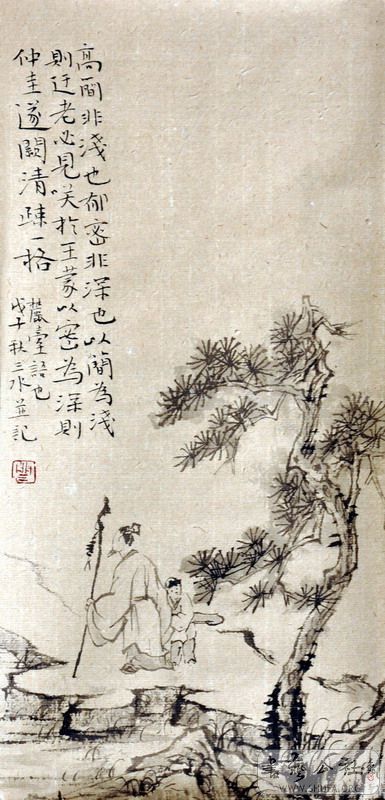 高簡非淺也郁密非深也以簡為淺
則迂老必見咲於王蒙以密為深則
仲圭遂闕清疎一格
麓臺語也
戊子秋三水並記
書藝公社
WWW.SHUFA.ORG